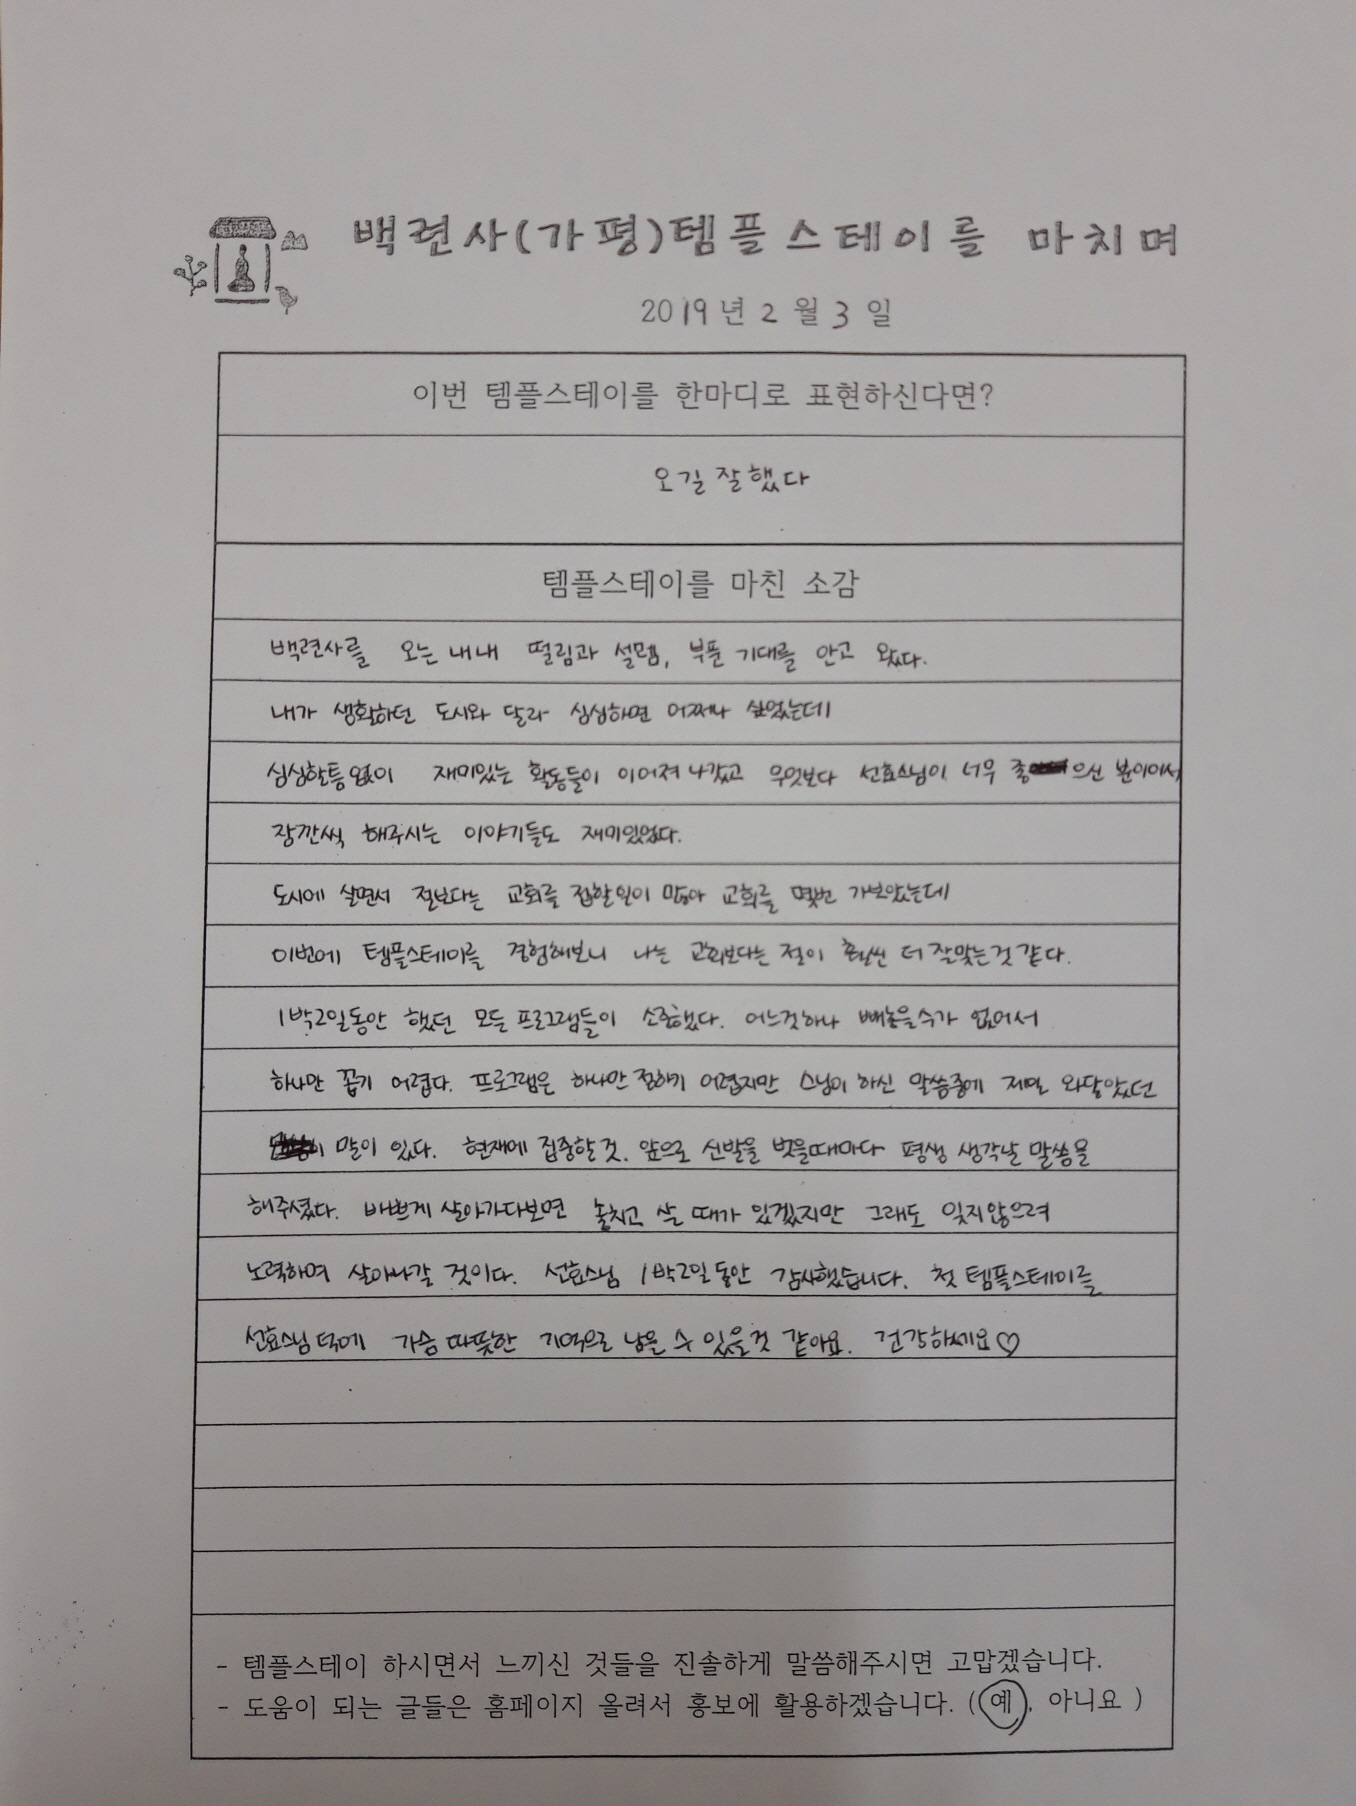 백련사(가평)템플스테이를 마치며
2019년 2월 3일
이번 템플스테이를 한마디로 표현하신다면?
오길 잘했다
템플스테이를 마친 소감
백련사를 오는 내내 떨림과 설렘, 부푼 기대를 안고 왔다.
내가 생활하던 도시와 달라 심심하면 어쩌나 싶었는데
심심할틈없이 재미있는 활동들이 이어져 나갔고 무엇보다 선효스님이 너무 좋으신 분이어서
장깐씩 해주시는 이야기들도 재미있었다.
도시에 살면서 절보다는 교회를 접할일이 많아 교회를 몇번 가보았는데
이번에 템플스테이를 경험해보니 나는 교회보다는 절이 훨씬 더 잘맞는것 같다.
1박2일동안 했던 모든 프로그램들이 소중했다. 어느것하나 빼놓을수가 없어서
하나만 꼽기 어렵다. 프로그램은 하나만 정하기 어렵지만 스님이 하신 말씀중에 제일 와닿았던
말이 있다. 현재에 집중할것. 앞으로 신발을 벗을때마다 평생 생각날 말씀을
해주셨다. 바쁘게 살아가다보면 놓치고 살 때가 있겠지만 그래도 잊지않으려
노력하며 살아나갈 것이다. 선효스님 1박2일동안 감사했습니다. 첫 템플스테이를
선효스님 덕에 가슴 따뜻한 기억으로 남을 수 있을것 같아요. 건강하세요♡
- 템플스테이 하시면서 느끼신 것들을 진솔하게 말씀해주시면 고맙겠습니다.
- 도움이 되는 글들은 홈페이지 올려서 홍보에 활용하겠습니다. (예, 아니요 )